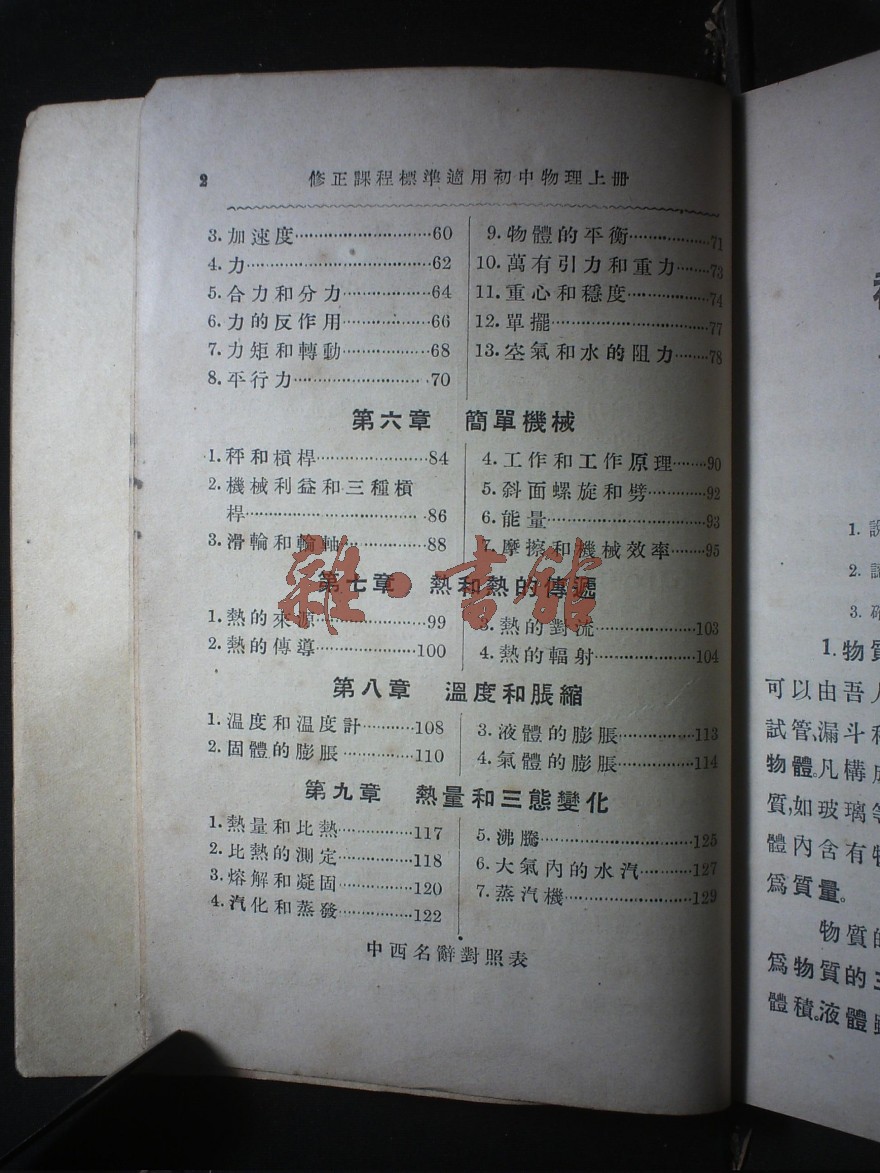 2
修正課程標準適用初中物理上册
3. 加速度……………………60
4. 力……………………62
5. 合力和分力……………64
6. 力的反作用……………66
7. 力矩和轉動……………68
8. 平行力……………………70
9. 物體的平衡………………71
10. 萬有引力和重力………73
11. 重心和穩度……………74
12. 單擺……………………77
13. 空氣和水的阻力………78
第六章 簡單機械
1. 秤和槓桿…………………84
2. 機械利益和三種槓
桿……………………86
3. 滑輪和輪軸……………88
4. 工作和工作原理………90
5. 斜面螺旋和劈…………92
6. 能量……………………93
7. 摩擦和機械效率………95
第七章 熱和熱的傳遞
1. 熱的來源………………99
2. 熱的傳導………………100
3. 熱的對流………………103
4. 熱的輻射………………104
第八章 溫度和脹縮
1. 温度和温度計…………108
2. 固體的膨脹……………110
3. 液體的膨脹……………113
4. 氣體的膨脹……………114
第九章 熱量和三態變化
1. 熱量和比熱……………117
2. 比熱的測定……………118
3. 熔解和凝固……………120
4. 汽化和蒸發……………122
5. 沸騰……………………125
6. 大氣內的水汽…………127
7. 蒸汽機…………………129
中西名辭對照表
雜·書館
1.
2.
3.
1. 物質
可以由吾人
試管、漏斗和
物體。凡構成
質,如玻璃等
體內含有物
爲質量。
物質的
爲物質的三
體積。液體